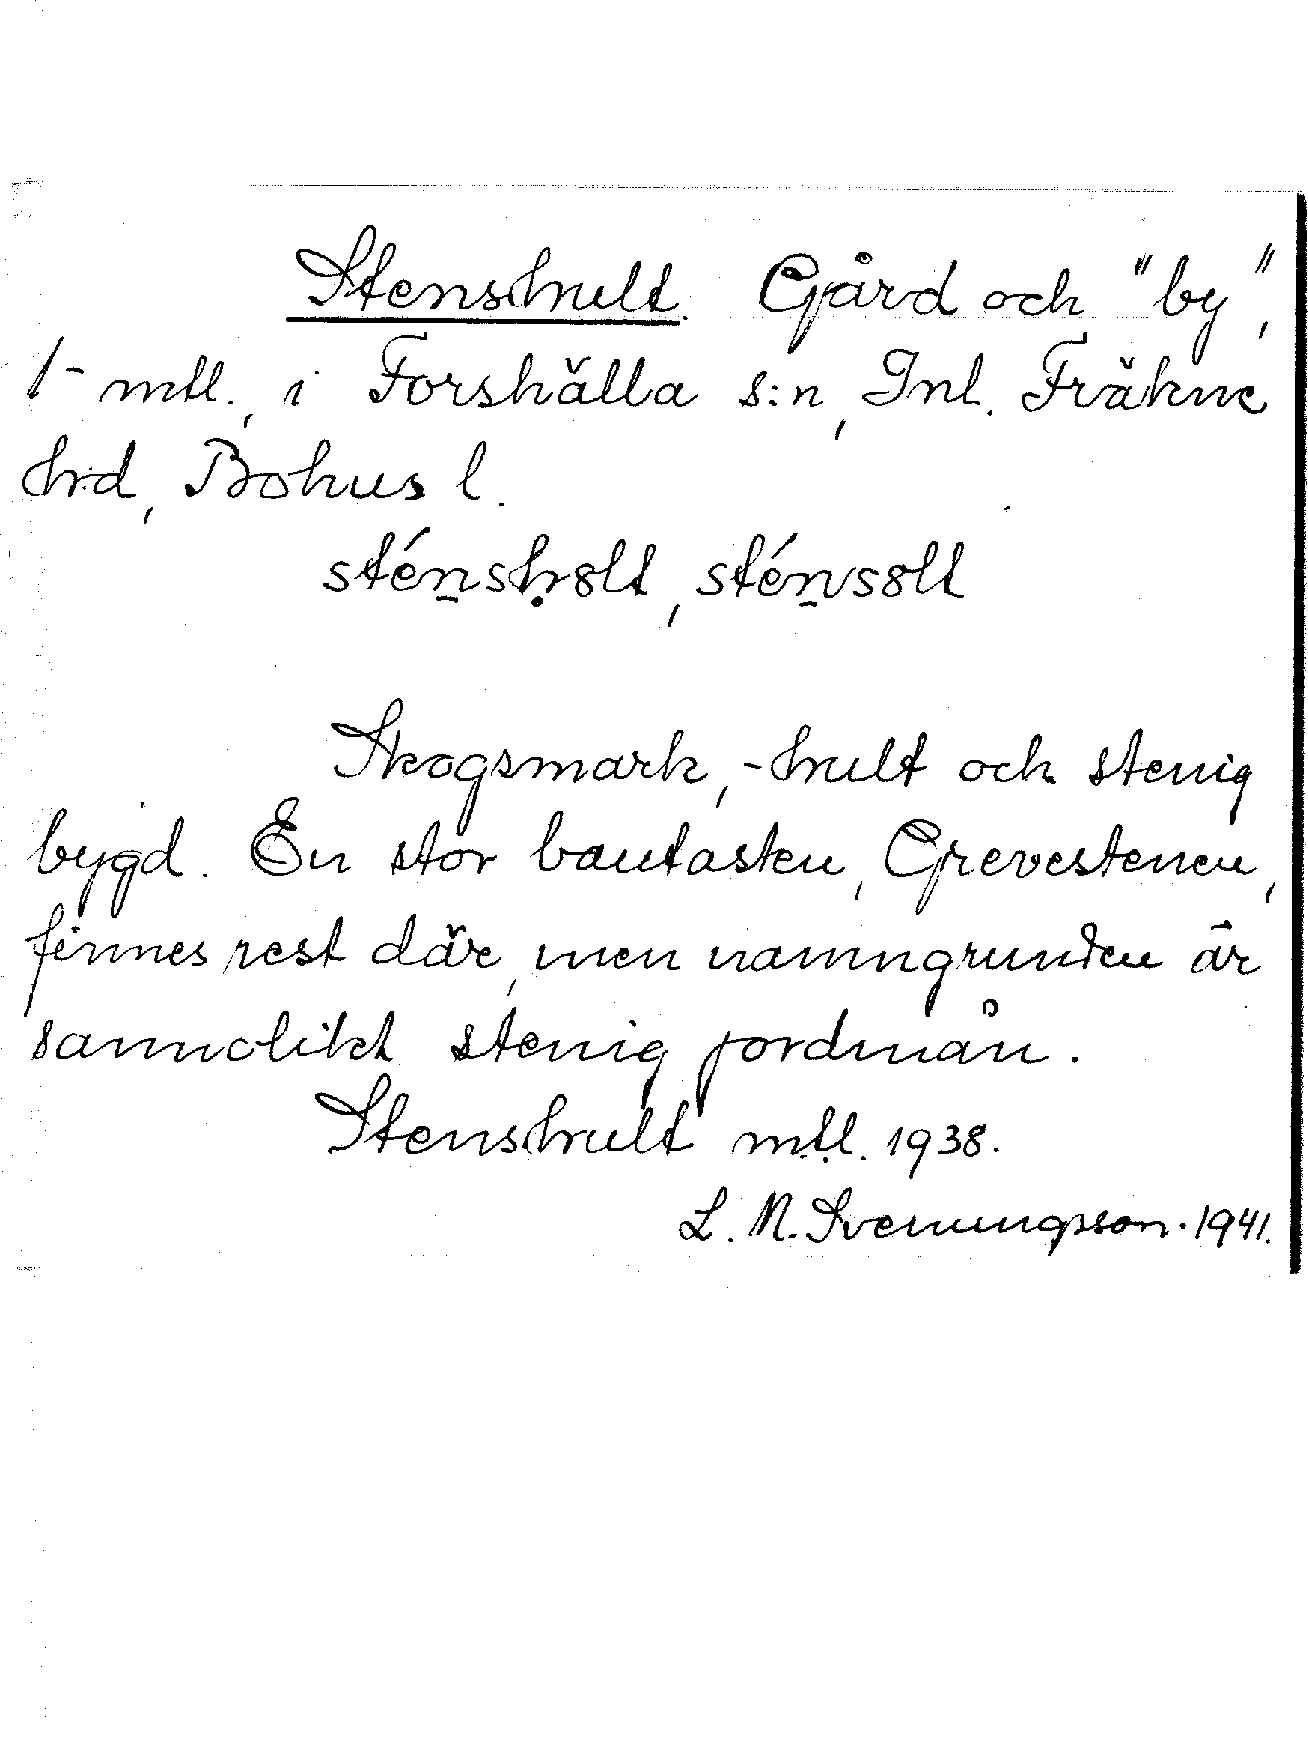 Stenshult. Gård och "by",
1 - mtl., i Forshälla s:n, Inl. Fräkne
hrd, Bohus l.
sténsḥ8lt, sténs8lt
Skogsmark, -hult och stenig
bygd. En stor bautasten, Grevestenen,
finnes rest där, men namngrunden är
sannolikt stenig jordmån.
Stenshult mtl. 1938.
L. N. Svenungsson. 1941.